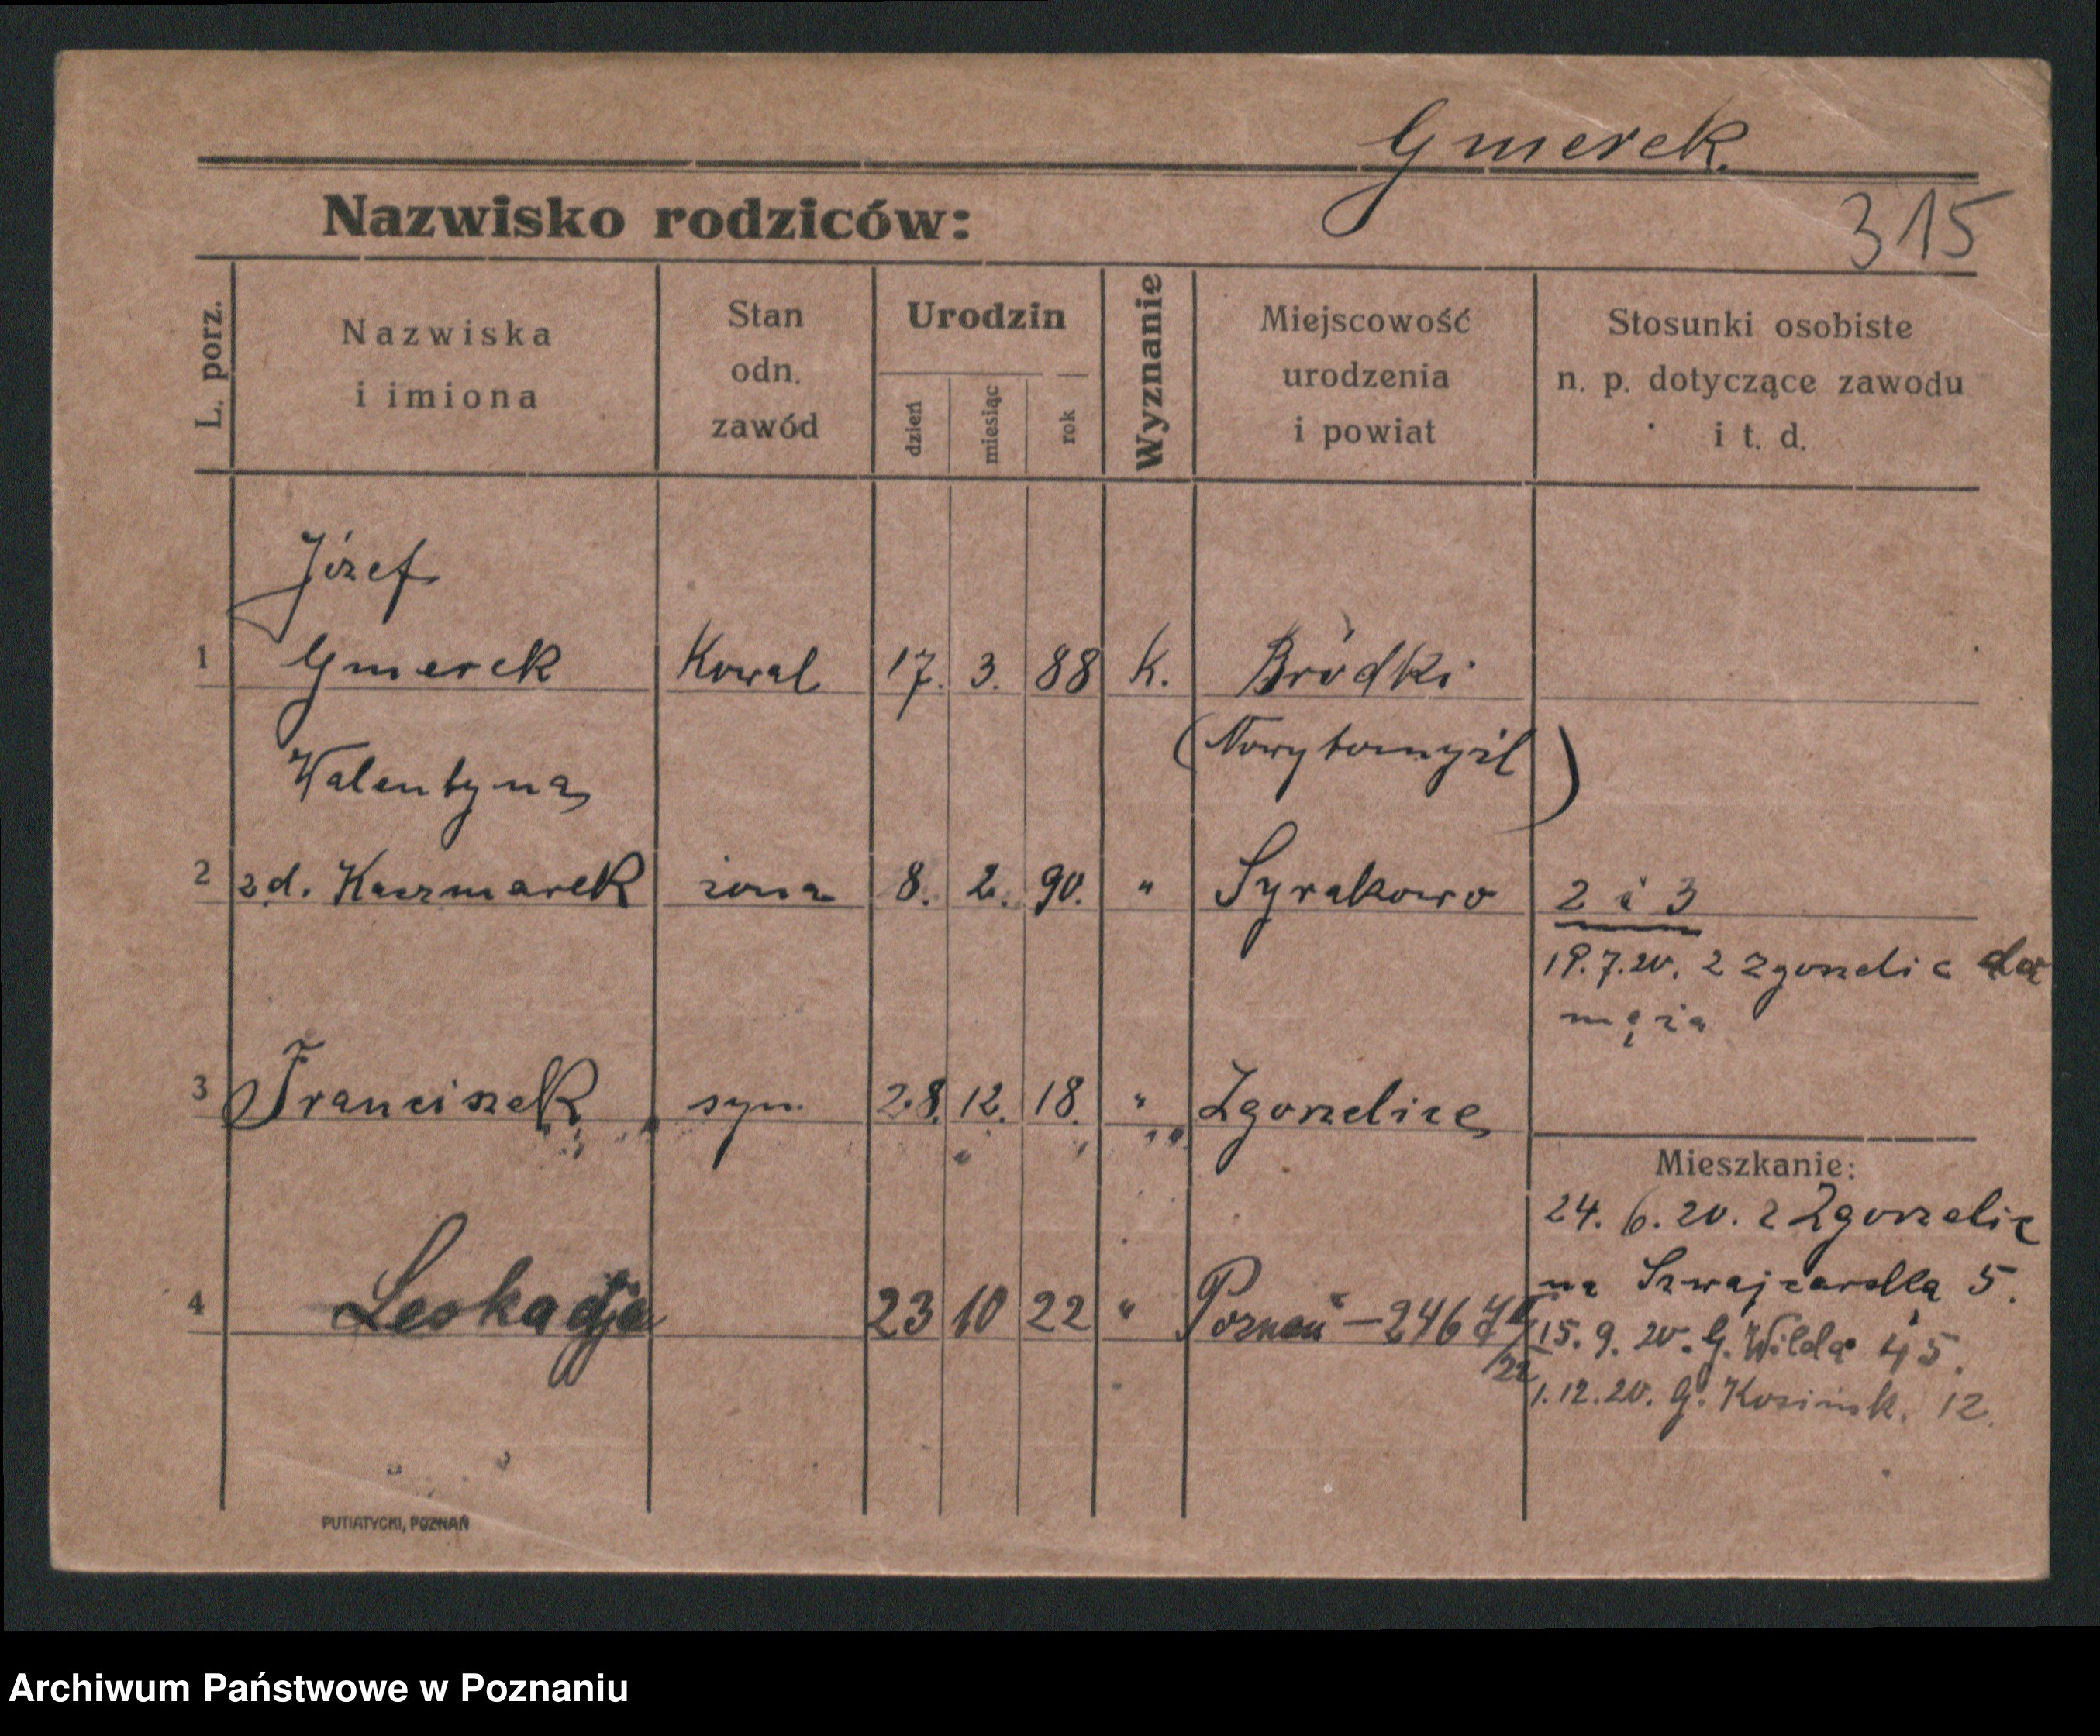 Gmerek.
315
Nazwisko rodziców:
L. porz.
Nazwiska
i imiona
Stan
odn.
zawód
Urodzin
dzień
miesiąc
rok
Wyznanie
Miejscowość
urodzenia
i powiat
Stosunki osobiste
n. p. dotyczące zawodu
i t. d.
Józef
1 Gmerek Kowal 17. 3. 88 K. Bródki
(Nowytomyśl)
Walentyna
2 zd. Kaczmarek żona 8. 2. 90. " Syrakowo 2 i 3
19.7.20. z Zgorzelic do
męża
3 Franciszek syn 28. 12. 18. " Zgorzelice
Mieszkanie:
24. 6. 20. z Zgorzelic
na Szwajcarska 5.
4 Leokadja 23 10 22 " Poznań – 246
/22
15. 9. 20. G. Wilda 45.
1.12.20. G. Kosińsk. 12.
PUTIATYCKI, POZNAŃ
Archiwum Państwowe w Poznaniu